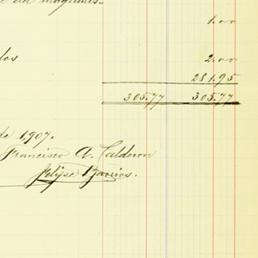 en maquinis-
1.00
los
2.00
281.95
305.77 305.77
de 1,907.
Francisco A. Calderon
Felipe Barrios.